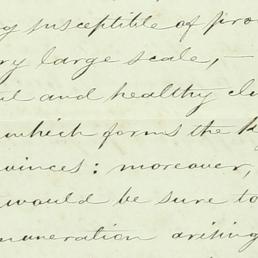 g susceptible of pro
ry large scale, —
ul and healthy cli
which forms the k
vinces: moreover,
would be sure to
muneration arising